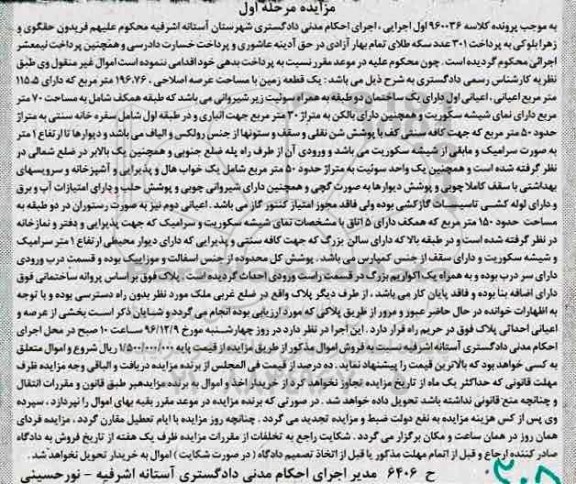 مزایده مرحله اول
به موجب پرونده کلاسه ۹۶۰۰۳۶ اول اجرایی ، اجرای احکام مدنی دادگستری شهرستان آستانه اشرفیه محکوم علیهم فریدون حقگوی و
زهرا بلوکی به پرداخت ۳۰۱ عدد سکه طلای تمام بهار آزادی در حق آدینه عاشوری و پرداخت خسارت دادرسی و همچنین پرداخت نیمعشر
اجرائی محکوم گردیده است. چون محکوم علیه در موعد مقرر نسبت به پرداخت بدهی خود اقدامی ننموده است اموال غیر منقول وی طبق
نظریه کارشناس رسمی دادگستری به شرح ذیل می باشد : یک قطعه زمین با مساحت عرصه اصلاحی ، ۱۹۶.۷۶ متر مربع که دارای ۱۱۵.۵
متر مربع اعیانی ، اعیانی اول دارای یک ساختمان دو طبقه به همراه سوئیت زیر شیروانی می باشد که طبقه همکف شامل به مساحت ۷۰ متر
مربع دارای نمای شیشه سکوریت و همچنین دارای بالکن به متراژ ۳۰ متر مربع جهت انباری و در طبقه اول شامل سفره خانه سنتی به متراژ
حدود ۵۰ متر مربع که جهت کافه سنتی کف با پوشش شن نقلی و سقف و ستونها از جنس رولکس و الیاف می باشد و دیوارها تا ارتفاع ۱ متر
به صورت سرامیک و مابقی از شیشه سکوریت می باشد و ورودی آن از طرف راه پله ضلع جنوبی و همچنین یک بالابر در ضلع شمالی در
نظر گرفته شده است و همچنین یک واحد سوئیت به متراژ حدود ۵۰ متر مربع شامل یک خواب هال و پذیرایی و آشپزخانه و سرویسهای
بهداشتی با سقف کاملا چوبی و پوشش دیوارها به صورت گچی و همچنین دارای شیروانی چوبی و پوشش حلب و دارای امتیازات آب و برق
و دارای لوله کشی تاسیسات گازکشی بوده ولی فاقد مجوز امتیاز کنتور گاز می باشد . اعیانی دوم نیز به صورت رستوران در دو طبقه به
مساحت حدود ۱۵۰ متر مربع که همکف دارای ۵ اتاق با مشخصات نمای شیشه سکوریت و سرامیک که جهت پذیرایی و دفتر و نمازخانه
در نظر گرفته شده است و در طبقه بالا که دارای سالن بزرگ که جهت کافه سنتی و پذیرایی که دارای دیوار محیطی ارتفاع ۱ متر سرامیک
و شیشه سکوریت و دارای سقف از جنس کمپارس می باشد . پوشش کل محدوده از جنس اسفالت و موزاییک بوده و قسمت درب ورودی
دارای سر درب بوده و به همراه یک آکواریم بزرگ در قسمت راست ورودی احداث گردیده است . پلاک فوق بر اساس پروانه ساختمانی فوق
دارای اضافه بنا بوده و فاقد پایان کار می باشد ، از طرف دیگر پلاک واقع در ضلع غربی ملک مورد نظر بدون راه دسترسی بوده و با توجه
به اظهارات خوانده در حال حاضر عبور و مرور از طریق پلاکی که مورد ارزیابی بوده انجام می گردد و شبایان ذکر است بخشی از عرصه و
اعیانی احداثی پلاک فوق در حریم راه قرار دارد . این اجرا در نظر دارد در روز چهارشنبه مورخ ۹۶/۱۲/۹ ساعت ۱۰ صبح در محل اجرای
احکام مدنی دادگستری آستانه اشرفیه نسبت به فروش اموال مذکور از طریق مزایده از قیمت پایه ۱/۵۰۰/۰۰۰/۰۰۰ ریال شروع و اموال متعلق
به کسی خواهد بود که بالاترین قیمت را پیشنهاد نماید . ده درصد از قیمت فی المجلس از برنده مزایده دریافت و الباقی وجه مزایده ظرف
مهلت قانونی که حداکثر یک ماه از تاریخ مزایده تجاوز نخواهد کرد از خریدار اخذ و اموال به برنده مزایده بر طبق قانون و مقررات انتقال
و چنانچه منع قانونی نداشته باشد تحویل داده خواهد شد . در صورتی که برنده مزایده در موعد مقرر بقیه بهای اموال را نپردازد ، سپرده
وی پس از کسر هزینه مزایده به نفع دولت ضبط و مزایده تجدید می گردد . چنانچه روز مزایده با ایام تعطیل مقارن گردد ، مزایده فردای
همان روز در همان ساعت و مکان برگزار می گردد . شکایت راجع به تخلفات از مقررات مزایده ظرف یک هفته از تاریخ فروش به دادگاه
صادر کننده ارجاع و قبل از اتمام مهلت مذکور یا قبل از اتخاذ تصمیم دادگاه ( در صورت شکایت ) اموال به خریدار تحویل نخواهد شد .
ح ۶۴۰۶ مدیر اجرای احکام مدنی دادگستری آستانه اشرفیه - نورحسینی